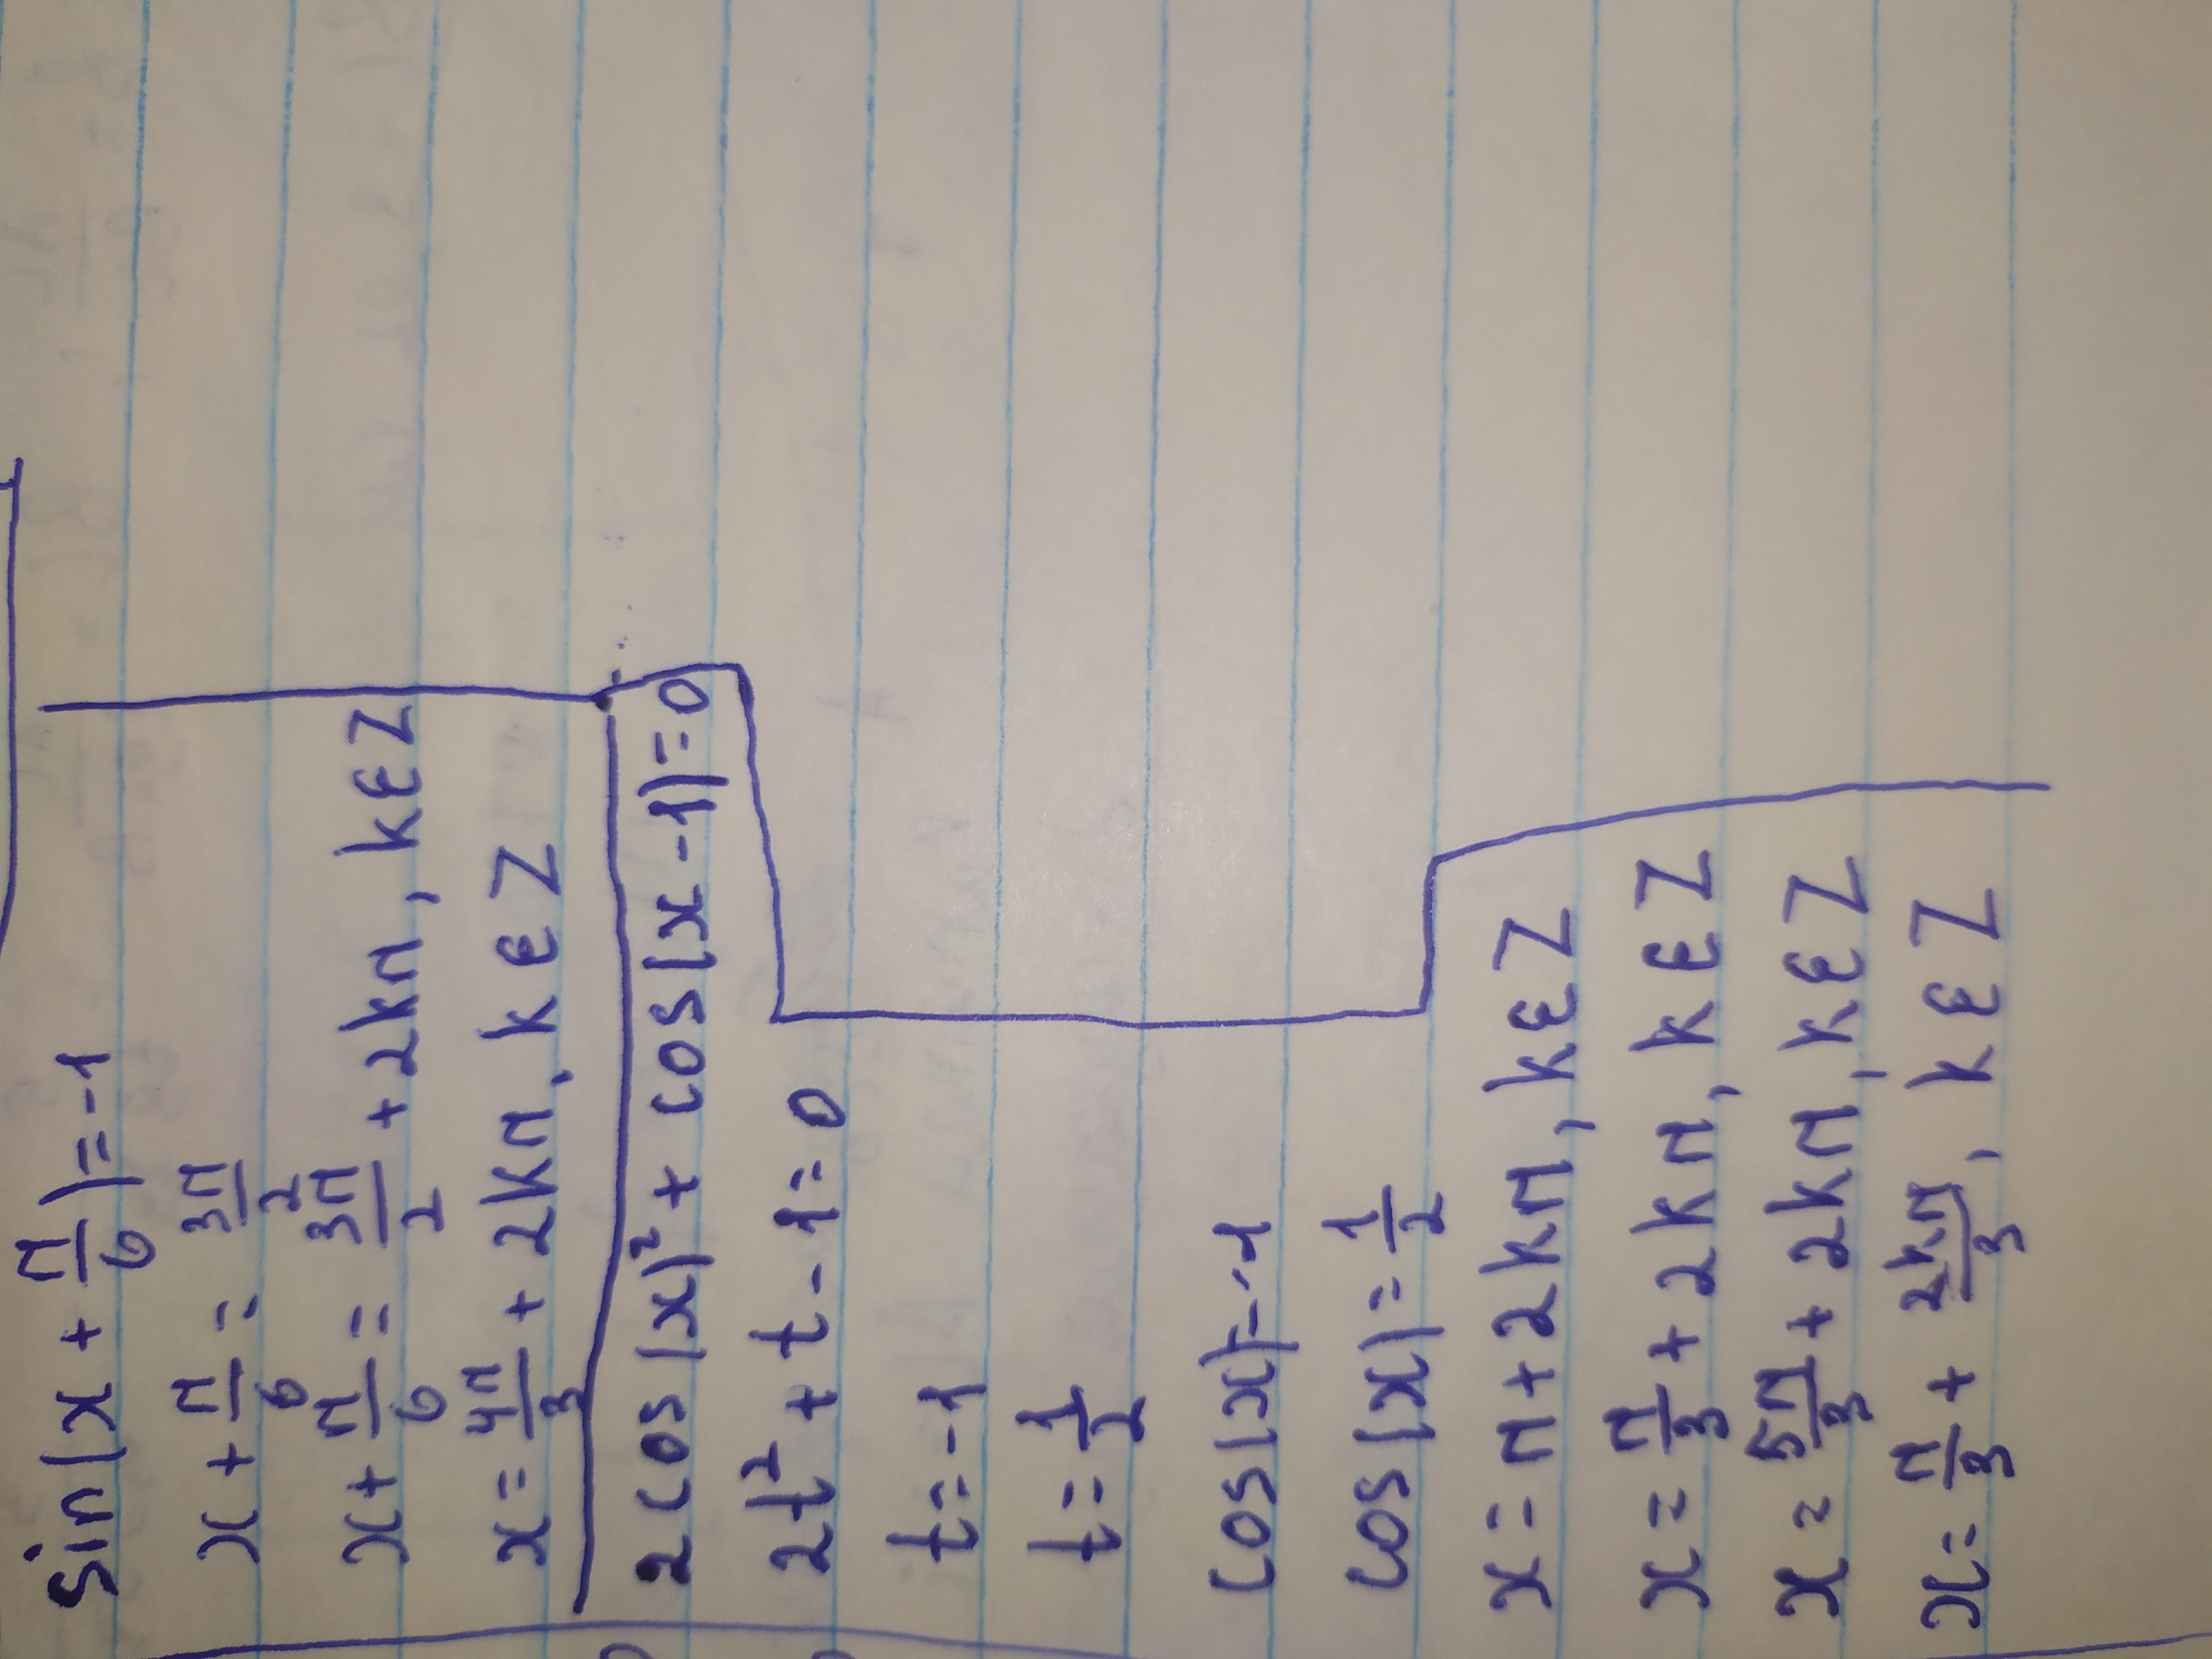 sin(x + π/6) = -1
x + π/6 = 3π/2
x + π/6 = 3π/2 + 2kπ, k ∈ Z
x = 4π/3 + 2kπ, k ∈ Z
2cos(x)² + cos(x - 1) = 0
2t² + t - 1 = 0
t = -1
t = 1/2
cos(x) = -1
cos(x) = 1/2
x = π + 2kπ, k ∈ Z
x = π/3 + 2kπ, k ∈ Z
x = 5π/3 + 2kπ, k ∈ Z
x = π/3 + 2kπ/3, k ∈ Z